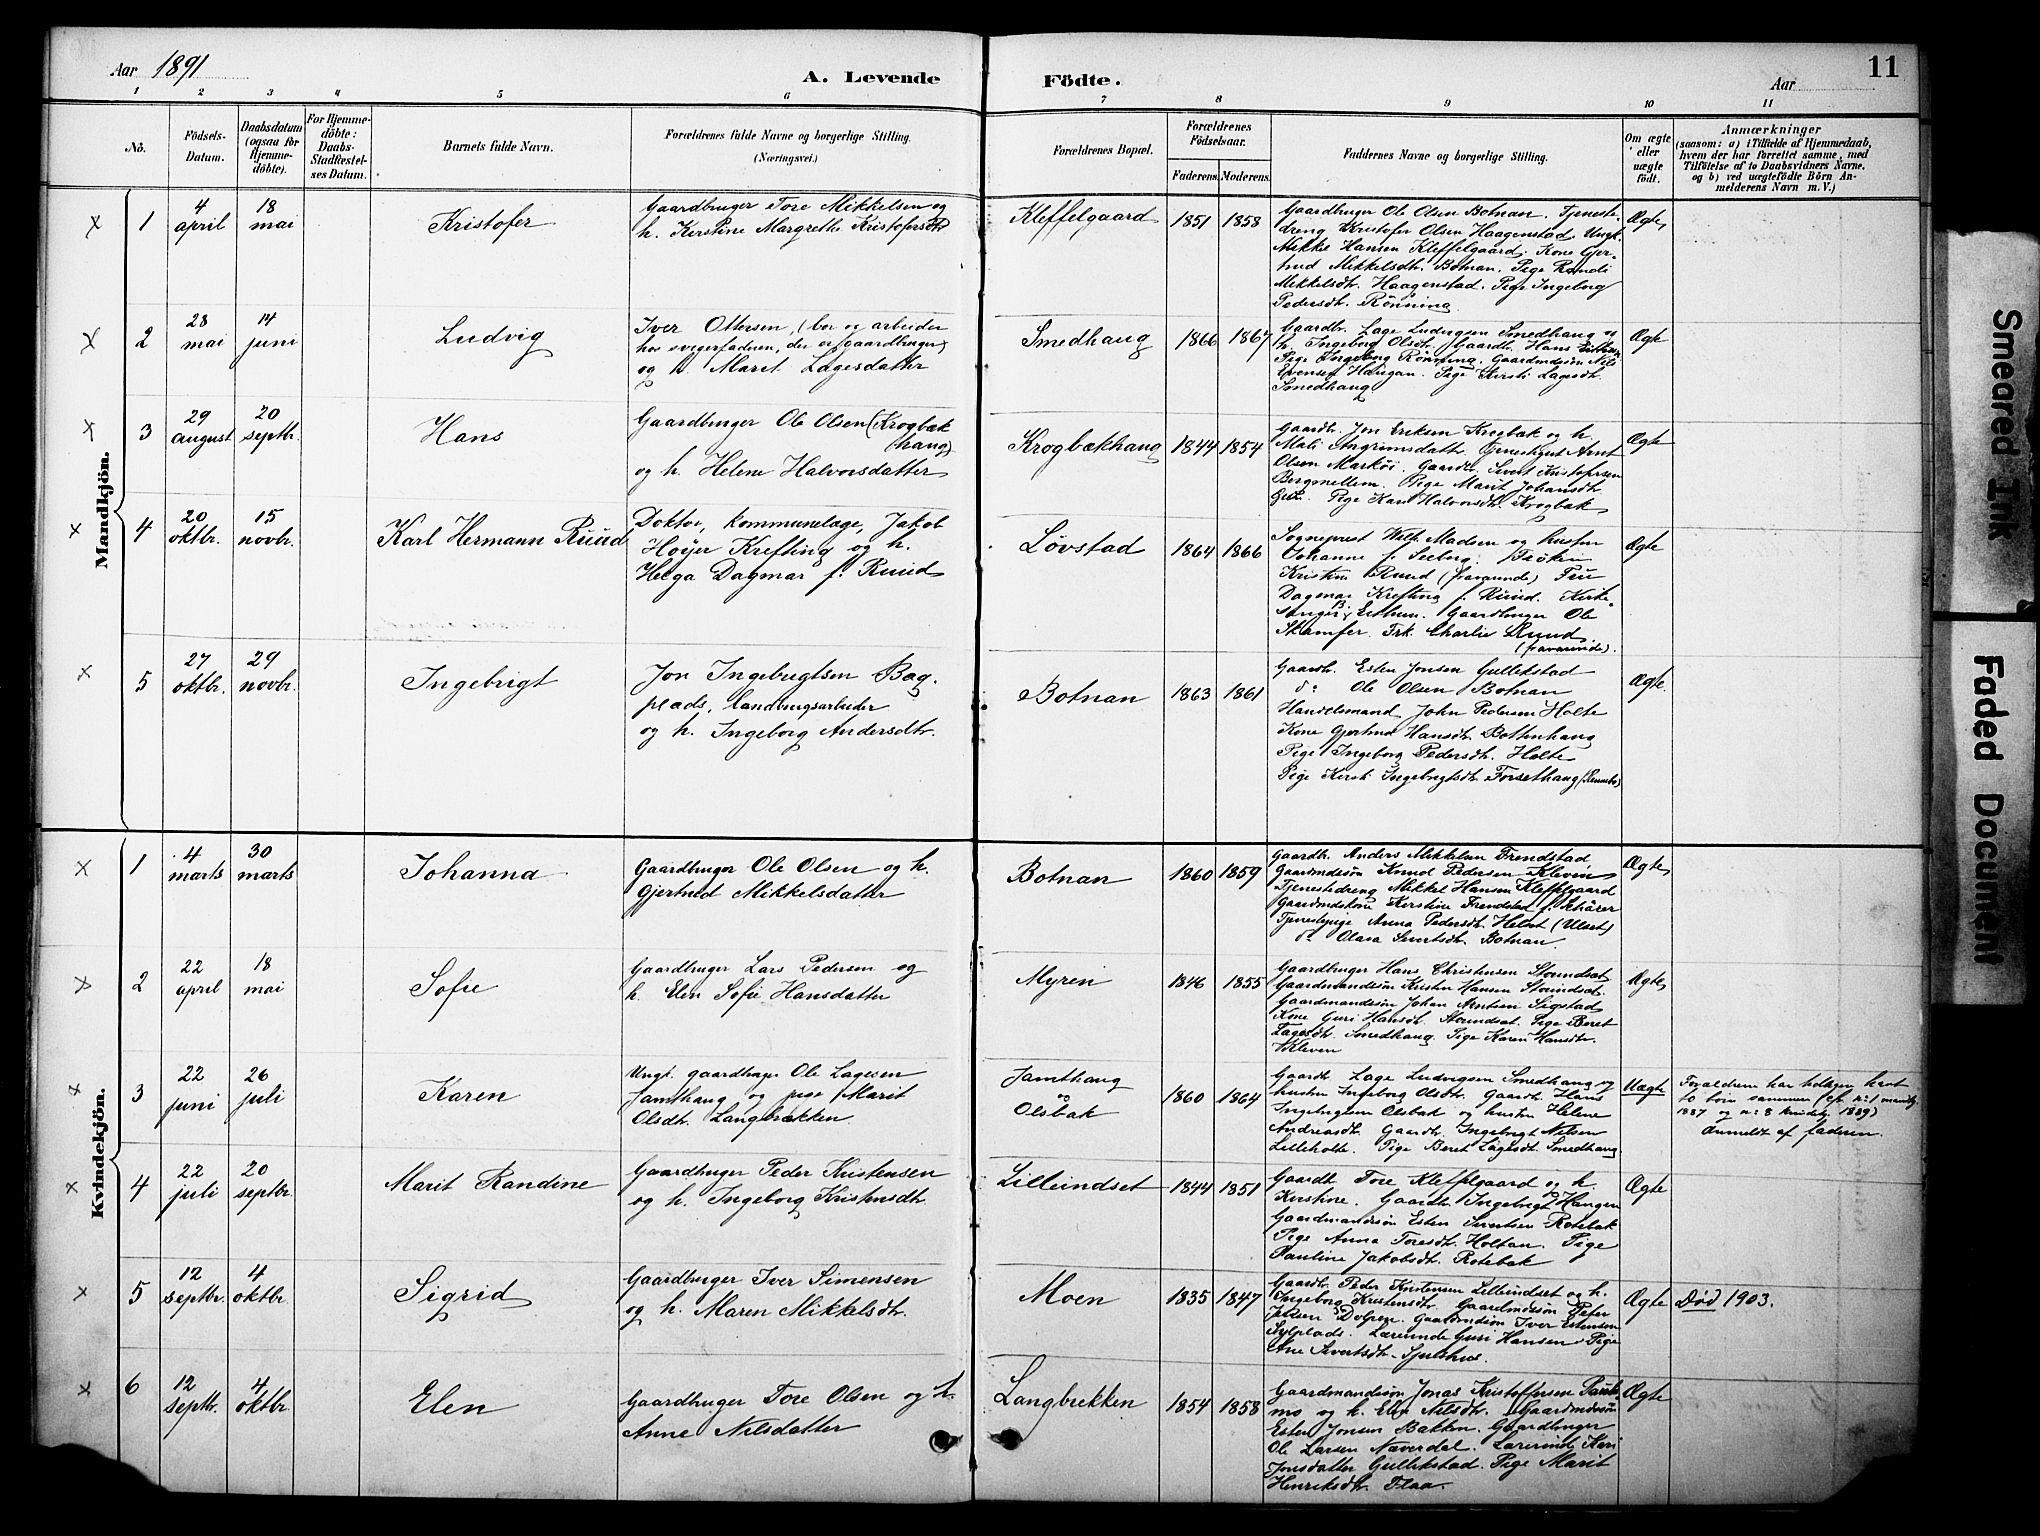 Aar 1891
A. Levende Födte.
Aar
11
1 2 3 4 5 6 7 8 9 10 11
No.
Födsels-
Datum.
Daabsdatum
(ogsaa for
Hjemme-
döbte).
For Hjemme-
döbte:
Daabs-
Stadfæstel-
ses Datum.
Barnets fulde Navn.
Forældrenes fulde Navne og borgerlige Stilling.
(Næringsvei.)
Forældrenes Bopæl.
Forældrenes
Födselsaar.
Faderens. Moderens.
Faddernes Navne og borgerlige Stilling.
Om ægte
eller
uægte
födt.
Anmærkninger
(saasom: a) i Tilfælde af Hjemmedaab,
hvem der har forrettet samme, med
Tilföielse af to Daabsvidners Navne.
og b) ved uægtefödte Börn An-
melderens Navn m. V.)
Mandkjön.
1
4
april
18
mai
Kristofer
Gaardbruger Tore Mikkelsen og
h. Kerstine Margrethe Kristofersdtr
Kleffelgaard
1851 1858
Gaardbruger Ole Olsen Botnan. Tjeneste-
dreng Kristofer Olsen Haagenstad. Ungk.
Mikkel Hansen Kleffelgaard. Kone Gjer-
trud Mikkelsdtr. Botnan. Pige Randi
Mikkelsdtr. Haagenstad. Pige Ingeborg
Pedersdtr. Rønning
Ægte
2
28
mai
14
juni
Ludvig
Iver Ottersen, (bor og arbeider
hos svigerfaderen, der er gaardbruger)
og h. Marit Lagesdatter
Smedhaug
1866 1867
Gaardbr. Lage Ludvigsen Smedhaug og
h. Ingeborg Olsdtr. Gaardbr. Hans
Pige Ingeborg Rønning. Gaardmdsøn Nils
Evensen Haugan. Pige Kirsti Lagesdtr.
Smedhaug
Ægte
3
29
august
20
septbr.
Hans
Gaardbruger Ole Olsen (Krogbæk
haug)
og h. Helene Halvorsdatter
Krogbækhaug
1844 1854
Gaardbr. Jon Eriksen Krogbæk og h.
Mali Angrimsdatter. Tjenestegut Arnt
Olsen Markøi. Gaardbr. Sivert Kristofersen
Bergmellem. Pige Marit Johansdtr.
Pige Kari Halvorsdtr. Krogbæk
Ægte
4
20
oktbr.
15
novbr.
Karl Hermann Ruud
Doktor, kommunelæge, Jakob
Høyer Krefting og h.
Helga Dagmar f. Ruud
Løvstad
1864 1866
Sogneprest Wilh. Madsen og hustru
Johanne f. Seeberg. Frøken
Kristine Ruud (fraværende) Fru
Dagmar Krefting f. Ruud. Kirke-
sanger B. Eithun. Gaardbruger Ole
Skamfer. Frk. Charlie Ruud
(fraværende).
Ægte
5
27
oktbr.
29
novbr.
Ingebrigt
Jon Ingebrigtsen Bag-
plads, landbrugsarbeider
og h. Ingeborg Andersdtr.
Botnan
1863 1861
Gaardbr. Esten Jonsen Gullikstad
do Ole Olsen Botnan
Handelsmand John Pedersen Holte
Kone Gjertrud Hansdtr. Bottenhaug
Pige Ingeborg Pedersdtr. Holte
Pige Kirsti Ingebrigtsdtr. Forsethaug (Rennebo)
Ægte.
Kvindekjön.
1
4
marts
30
marts
Johanna
Gaardbruger Ole Olsen og h.
Gjertrud Mikkelsdatter
Botnan
1860 1859
Gaardbr. Anders Mikkelsen Frendstad
Gaardmdsøn Knud Pedersen Kleven
Tjenestedreng Mikkel Hansen Kleffelgaard
Gaardmdskone Kerstine Frendstad f. Schärer
Tjenestepige Anna Pedersdtr. Helset (Ulset)
do Olava Sivertsdtr. Botnan
Ægte
2
22
april
18
mai
Sofie
Gaardbruger Lars Pedersen og
h. Elen Sofie Hansdatter
Myren
1846 1855
Gaardbruger Hans Christensen Storindset
Gaardmandssøn Kristen Hansen Storindset.
Gaardmandssøn Johan Arntsen Sigstad
Kone Guri Hansdtr. Storindset. Pige Beret
Lagesdtr. Smedhaug. Pige Karen Hansdtr.
Kleven
Ægte
3
22
juni
26
juli
Karen
Ungk. gaardbruger Ole Lagesen
Jamthaug og pige Marit
Olsdtr. Langbrækken
Jamthaug
og
Olsbak
1860 1864
Gaardbr. Lage Ludvigsen Smedhaug og
hustru Ingeborg Olsdtr. Gaardbr. Hans
Ingebrigtsen Olsbak og hustru Helene
Andreasdtr. Gaardbr. Ingebrigt Nilsen
Lilleholte. Pige Beret Lagesdtr. Smedhaug
Uægte
Forældrene har tidligere havt
to børn sammen (cfr. no 1 mandkj.
1887 og no 8 kvindekj. 1889)
Anmeldt af faderen.
4
22
juli
20
septbr.
Marit Randine
Gaardbruger Peder Kristensen
og h. Ingeborg Kristensdtr.
Lilleindset
1844 1851
Gaardbr. Tore Kleffelgaard og h.
Kerstine. Gaardbr. Ingebrigt Haugen
Gaardmandssøn Esten Sivertsen Rotebak
Pige Anna Toresdtr. Holtan. Pige
Pauline Jakobsdtr. Rotebak
Ægte
5
12
septbr.
4
oktbr.
Sigrid
Gaardbruger Iver Simensen
og h. Maren Mikkelsdtr.
Moen
1835 1847
Gaardbr. Peder Kristensen Lilleindset og h.
Ingeborg Kristensdtr. Gaardmdsøn Peter
Jensen Dolpen. Gaardmdsøn Iver Estensen
Sylplads. Lærerinde Guri Hansen. Pige
Ane Sivertsdtr. Sjulshus.
Ægte
Død 1903.
6
12
septbr.
4
oktbr
Elen
Gaardbruger Tore Olsen og h.
Anne Nilsdatter
Langbrekken
1854 1858
Gaardmandssøn Jonas Kristoffersen
mo og h. Elen Nilsdtr. Gaardmdsøn
Esten Jonsen Bakken. Gaardbruger
Ole Larsen Næverdal. Lærerinde Kari
Jonsdatter Gullikstad. Pige Marit
Henriksdtr. Flaa.
Ægte
Smeared Ink
Faded Document